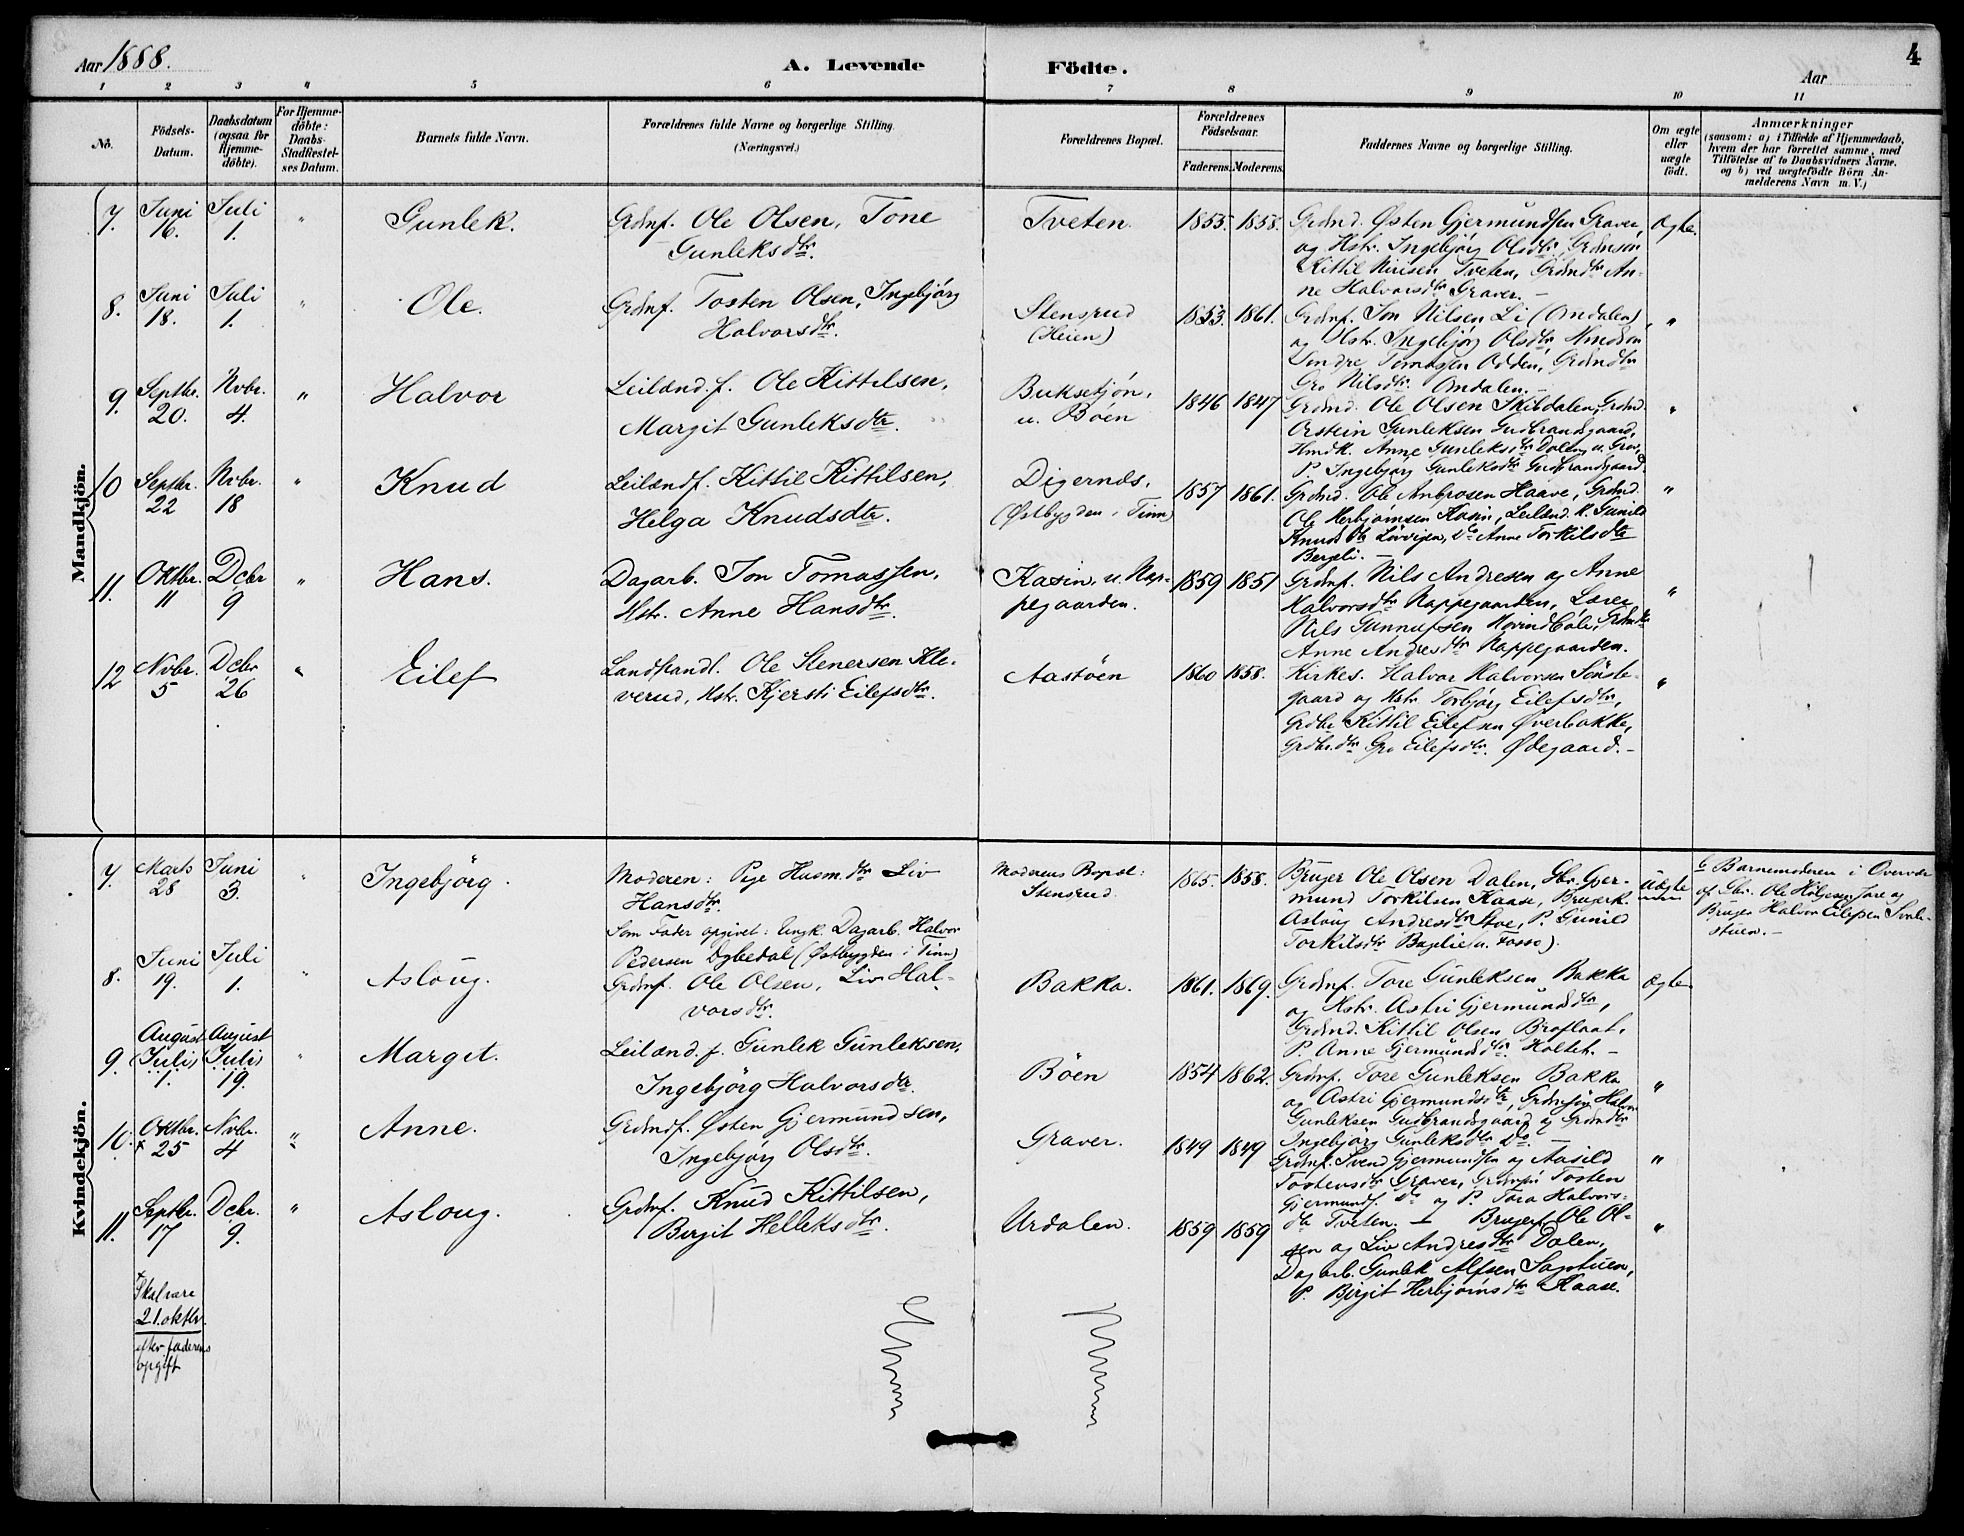 Aar 1888. A. Levende Födte. Aar 4
1 2 3 4 5 6 7 8 9 10 11
No. Födsels-Datum. Daabsdatum (ogsaa for Hjemme-döbte). For Hjemme-döbte: Daabs-Stadfæstel-ses Datum. Barnets fulde Navn. Forældrenes fulde Navne og borgerlige Stilling. (Næringsvei.) Forældrenes Bopæl. Forældrenes Födselsaar. Faderens. Moderens. Faddernes Navne og borgerlige Stilling. Om ægte eller uægte födt. Anmærkninger (saasom: a) i Tilfælde af Hjemmedaab, hvem der har forrettet samme, med Tilföielse af to Daabsvidners Navne. og b) ved uægtefödte Börn An-melderens Navn m. V.)
Mandkjön.
7. Juni 16. Juli 1. " Gunlek. Grdmf. Ole Olsen, Tone Gunleksdtr. Tveten. 1855. 1858. Grdmd. Østen Gjermundsen Graver,
og Hstr. Ingebjörg Olsdtr, Grdmsön
Kittil Nirisen Tveten, Grdmdtr An-
ne Halvorsdtr Graver. – Ægte.
8. Juni 18. Juli 1. " Ole. Grdmf. Tosten Olsen, Ingebjörg Halvorsdtr. Stensrud (Heien) 1853. 1861. Grdmf. Jon Nilsen Li (Omdalen),
og Hstr. Ingebjörg Olsdtr
Sondre Tomassen Odden, Grdmdtr
Gro Nilsdtr. Omdalen. – "
9. Septbr. 20. Nvbr. 4. " Halvor Leilænd.f. Ole Kittilsen, Margit Gunleksdtr. Buksetjön, u. Böen 1846 1847 Grdmd. Ole Olsen Skildalen, Grdmd.
Orstein Gunleksen Gudbrandsgaard,
Hmdk. Anne Gunleksdtr Dalen u. Grav,
P. Ingebjörg Gunleksdtr Gudbrandsgaard. "
10 Septbr. 22 Nvbr. 18 " Knud Leilændf. Kittil Kittilsen, Helga Knudsdtr. Digernæs, (Østbygden i Tinn) 1857 1861. Grdmd. Ole Ambrosen Haave, Grdmd.
Ole Herbjörnsen Kasin, Leilænd.k. Gunild
Knudsdtr Lövvigen, Do Anne Torkilsdtr
Bergeli. – "
11. Oktbr. 11 Dcbr 9 " Hans. Dagarb. Jon Tomassen, Hstr. Anne Hansdtr. Kasin, u. Nap-pegaarden. 1859 1851 Grdmf. Nils Andresen og Anne
Halvorsdtr Nappegaarden, Lærer
Nils Gunnufsen Hovindböle, Grdmdtr
Anne Andresdtr Nappegaarden. "
12 Nvbr. 5 Dcbr 26 " Eilef Landhandl. Ole Stenersen Kle-verud, Hstr. Kjersti Eilefsdtr. Aastöen 1860 1858. Kirkes. Halvor Halvorsen Sönste-
gaard og Hstr Torbjörg Eilefsdtr,
Grdbr Kittil Eilefsen Øverbakke,
Grdbr.dtr Gro Eilefsdtr. Ødegaard. – "
Kvindekjön.
7. Marts 28 Juni 3. " Ingebjörg. Moderen: Pige Husm.dtr Liv
Hansdtr.
Som Fader opgivet: Ungk. Dagarb. Halvor
Pedersen Dybedal (Østbygden i Tinn) Moderens Bopæl: Stensrud. 1865. 1858. Bruger Ole Olsen Dalen, Gbr. Gjer-
mund Torkilsen Kaase, Brugerk.
Aslaug Andresdtr Stoe, P. Gunild
Torkilsdtr Baglie (u. Fosso). Uægte b Barnemoderen i Overvær
af Gbr. Ole Helgesen Jore og
Bruger Halvor Eilefsen Svale-
stuen. –
8. Juni 19. Juli 1. " Asloug. Grdmf. Ole Olsen, Liv Hal-vorsdtr. Bakka. 1861. 1869. Grdmf. Tore Gunleksen Bakka
og Hstr. Astri Gjermundsdtr,
Grdmd. Kittil Olsen Broflaat,
P. Anne Gjermundsdtr. Holteh. – Ægte
9. August (Juli) 1. August (Juli) 19. " Margit. Leilænd.f. Gunlek Gunleksen, Ingebjörg Halvorsdtr. Böen 1854 1862. Grdmf. Tore Gunleksen Bakka
og Astri Gjermundsdtr, Grdmsön Halvor
Gunleksen Gudbrandsgaard og Grdmdtr
Ingebjörg Gunleksdtr Do. – "
10. Oktbr. × 25 Nvbr. 4 " Anne. Grdmdf. Østen Gjermundsen, Ingebjörg Olsdtr. Graver. 1849 1849 Grdmf. Svend Gjermundsen og Aasild
Tostensdtr Graver, Grdmsön Tosten
Gjermunds. Do og P. Tora Halvors-
dtr Tveten. – "
11. Septbr. 17 Dcbr. 9. " Asloug. Grdmf. Knud Kittilsen, Birgit Helleksdtr. Urdalen. 1859 1859 Brugerf. Ole Ol-
sen og Liv Andresdtr Dalen,
Dagarb. Gunlek Alfsen Sagstuen,
P. Birgit Herbjörnsdtr Kaase. "
× Skal være
21. oktbr.
efter faderens
opgift